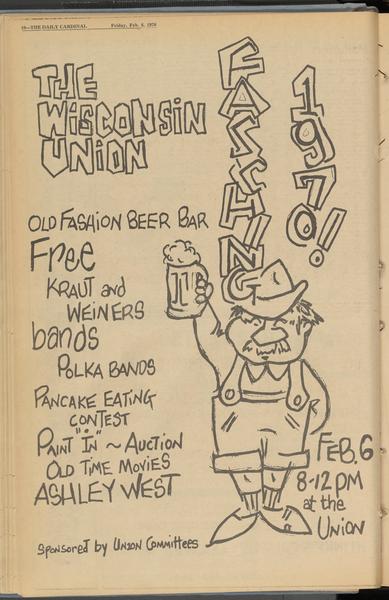 10—THE DAILY CARDINAL Friday, Feb. 6, 1970
THE
WISCONSIN
UNION
FASCHING
1970!!
OLD FASHION BEER BAR
Free
KRAUT and
WEINERS
bands
POLKA BANDS
PANCAKE EATING
CONTEST
PAINT "IN" ~ AUCTION
OLD TIME MOVIES
ASHLEY WEST
FEB. 6
8-12 PM
at the
UNION
Sponsored by UNION COMMITTEES